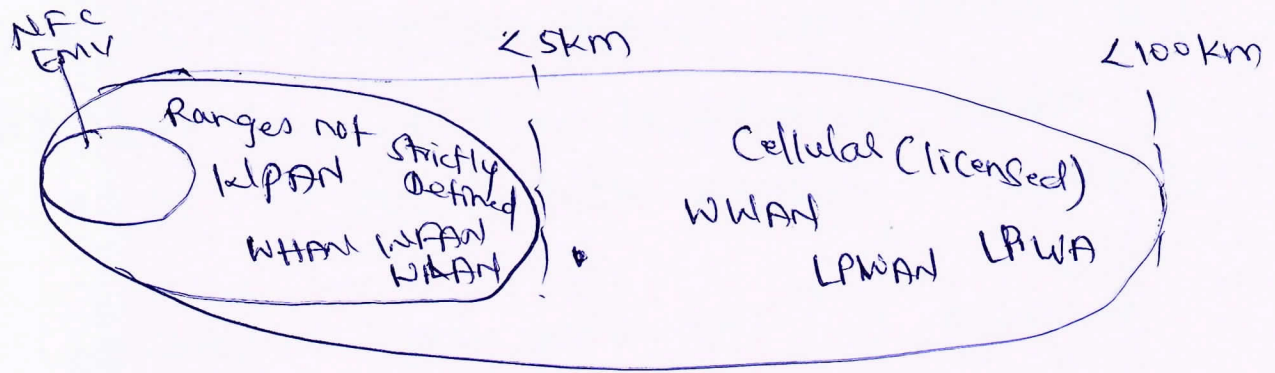 NFC
EMV
<5km
<100km
Ranges not strictly
Defined
WPAN
WHAN WFAN
WLAN
Cellular (licensed)
WWAN
LPWAN LPWA